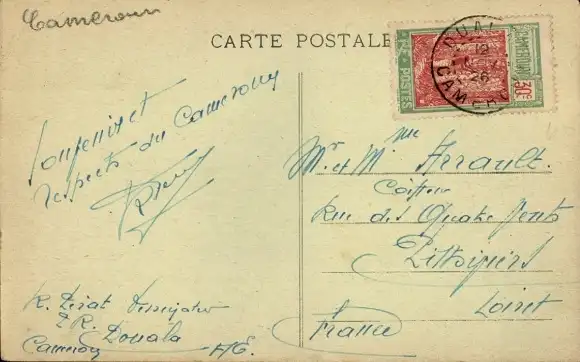 Cameroun
CARTE POSTALE
CAMEROUN
30c
POSTES
DOUALA
12
26
CAMEROUN
Souvenir et
respects du Cameroun
Mr et Mme Arrault
Coiffeur
Rue des Quatre Vents
Pithiviers
Loiret
France
R.
Douala
Cameroun